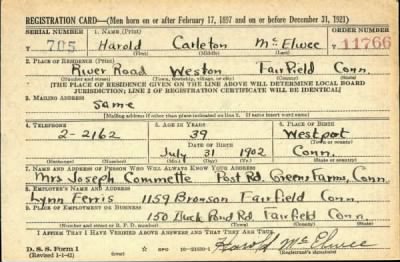 REGISTRATION CARD—(Men born on or after February 17, 1897 and on or before December 31, 1921)
SERIAL NUMBER 1. NAME (Print) ORDER NUMBER
T 705 Harold Carleton McElwee 11766
(First) (Middle) (Last)
2. PLACE OF RESIDENCE (Print)
River Road Weston Fairfield Conn.
(Number and street) (Town, township, village, or city) (County) (State)
[THE PLACE OF RESIDENCE GIVEN ON THE LINE ABOVE WILL DETERMINE LOCAL BOARD
JURISDICTION; LINE 2 OF REGISTRATION CERTIFICATE WILL BE IDENTICAL]
3. MAILING ADDRESS
Same
[Mailing address if other than place indicated on line 2. If same insert word same]
4. TELEPHONE 5. AGE IN YEARS 6. PLACE OF BIRTH
2-2162 39 Westport
DATE OF BIRTH (Town or county)
July 31 1902 Conn.
(Exchange) (Number) (Mo.) (Day) (Yr.) (State or country)
7. NAME AND ADDRESS OF PERSON WHO WILL ALWAYS KNOW YOUR ADDRESS
Mrs Joseph Commette Post Rd. Greens Farms, Conn.
8. EMPLOYER'S NAME AND ADDRESS
Lynn Ferris 1159 Bronson Fairfield Conn.
9. PLACE OF EMPLOYMENT OR BUSINESS
150 Duck Pond Rd Fairfield Conn.
(Number and street or R. F. D. number) (Town) (County) (State)
I AFFIRM THAT I HAVE VERIFIED ABOVE ANSWERS AND THAT THEY ARE TRUE.
D. S. S. Form 1
(Revised 1-1-42) (over) Harold McElwee